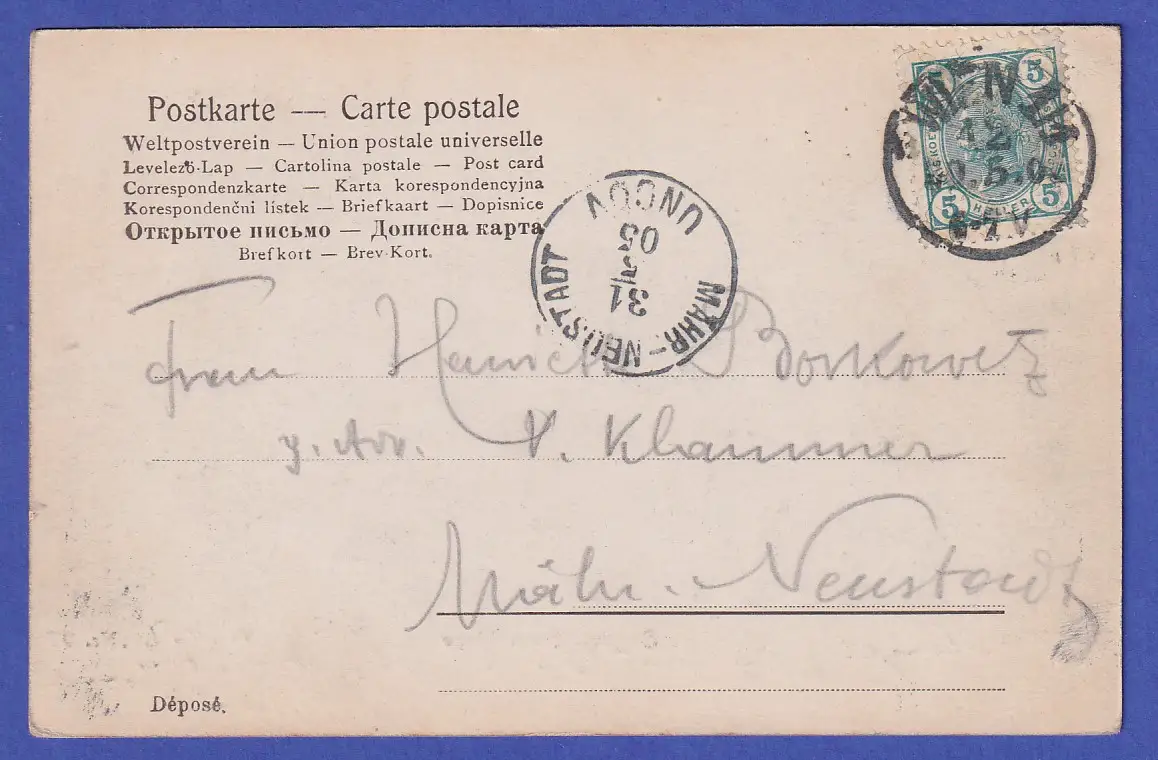 Postkarte — Carte postale
Weltpostverein — Union postale universelle
Levelezö-Lap — Cartolina postale — Post card
Correspondenzkarte — Karta korespondencyjna
Korespondenční lístek — Briefkaart — Dopisnice
Открытое письмо — Дописна карта
Brefkort — Brev-Kort.
5 5
WIEN
12
5 5
HELLER
6-7 V
UNCOV
05
31
MÄHR.-NEUSTADT
Borkowetz
V. Klammer
Mähr. Neustadt
Déposé.